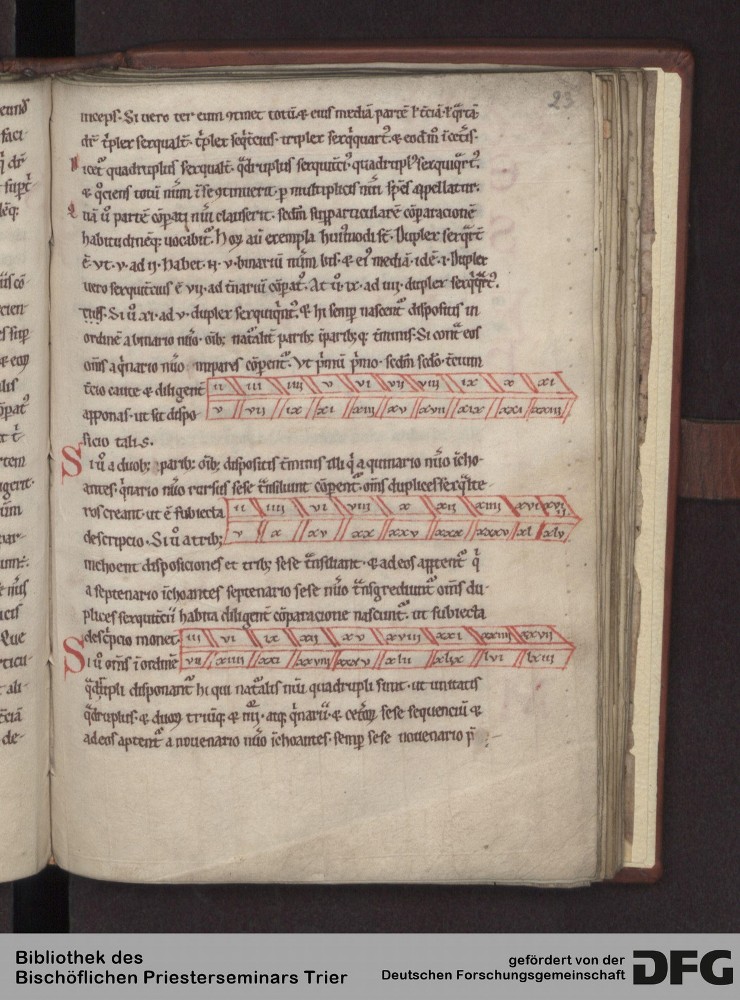 23
inceps. Si uero ter eum ꝯtinet totū & eius mediā partē ł t̄ciā ł q̄rtā
dr̄ t̄plex sexqualt̄. t̄plex seq̄tcius. triplex sexq̄quart᷒. & eodm̄ ī cet̄is.
icet̄ quadruplus sexqualt̄. q̄druplus sexquitci᷒. quadrupl᷒ sexquiq̄rt᷒.
& q̄ciens totū nūm ī se ꝯtinuerit. p̱ multiplicis nūi sp̄es appellatur.
uā ū partē cōpati nūi clauserit. scdm̄ sup̱particularē cōparacionē
habitudinēq; uocabit᷒. Hoꝝ aū exempla hui᷒modi st̄. Duplex sexq̄rt̄
ē. vt. v. ad ij. Habet. n̄. v. binariū nūm bis. & ei᷒ mediā. id ē. i. Duplex
uero sexquitcius ē vii. ad t̄nariū cōpat᷒. At ū. ix. ad iiij. duplex sexq̄q̄rt᷒.
Si ū. xi. ad v. duplex sexquiq̄nt᷒. & hi semp̱ nascent᷒ dispositis in
ordinē a binario nūo. oīb; nat᷒alit̄ parib; īparib;q; t̄minis. Si cont᷒ eos
om̄s a q̄nario nūo inpares cōpent᷒. Vt p̄mū p̄mo. scdm̄ scdo. t̄cium
t̄cio caute & diligent̄
ii iii iiii v vi vii viii ix x xi
apponas. ut sit dispo-
v vii ix xi xiii xv xvii xix xxi xxiii
sicio talis.
Si ū a duob; parib; oīb; dispositis t̄minis illi q̄ a quinario nūo īcho-
antes. q̄nario nūo rursus sese t̄nsiliunt cōpent᷒. om̄s duplices sexq̄lte-
ros creant. ut ē subiecta
ii iiii vi viii x xii xiiii xvi xviii
descripcio. Si ū a trib;
v x xv xx xxv xxx xxxv xl xlv
inchoent disposiciones et trib; sese t̄nsiliant. & ad eos aptent᷒ q̄
a septenario īchoantes septenario sese nūo t̄nsgrediunt᷒ om̄s du-
plices sexquitcii habita diligent̄ cōparacione nascunt᷒. ut subiecta
desc̄pcio monet
iii vi ix xii xv xviii xxi xxiiii xxvii
Si ū om̄s ī ordinē
vii xiiii xxi xxviii xxxv xlii xlix lvi lxiii
q̄drupli disponant᷒ hi qui nat᷒alis nūi quadrupli sunt. ut unitatis
q̄druplus. & duoꝝ triūq; & iiii. atq; q̄narii. & cet̄oꝝ sese sequenciū &
ad eos aptent᷒ a nouenario nūo īchoantes. semp̱ sese nouenario p̄
Bibliothek des
Bischöflichen Priesterseminars Trier
gefördert von der
Deutschen Forschungsgemeinschaft
DFG